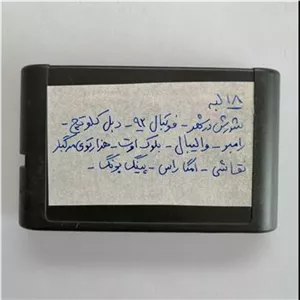 ۱۸ لبه
شورش در شهر - فوتبال ۹۲ - دبل کلوتچ -
رامبو - والیبال - بلوک اوت - هزارتوی مرگبار
نقاشی - امگا راس - پینگ پونگ -